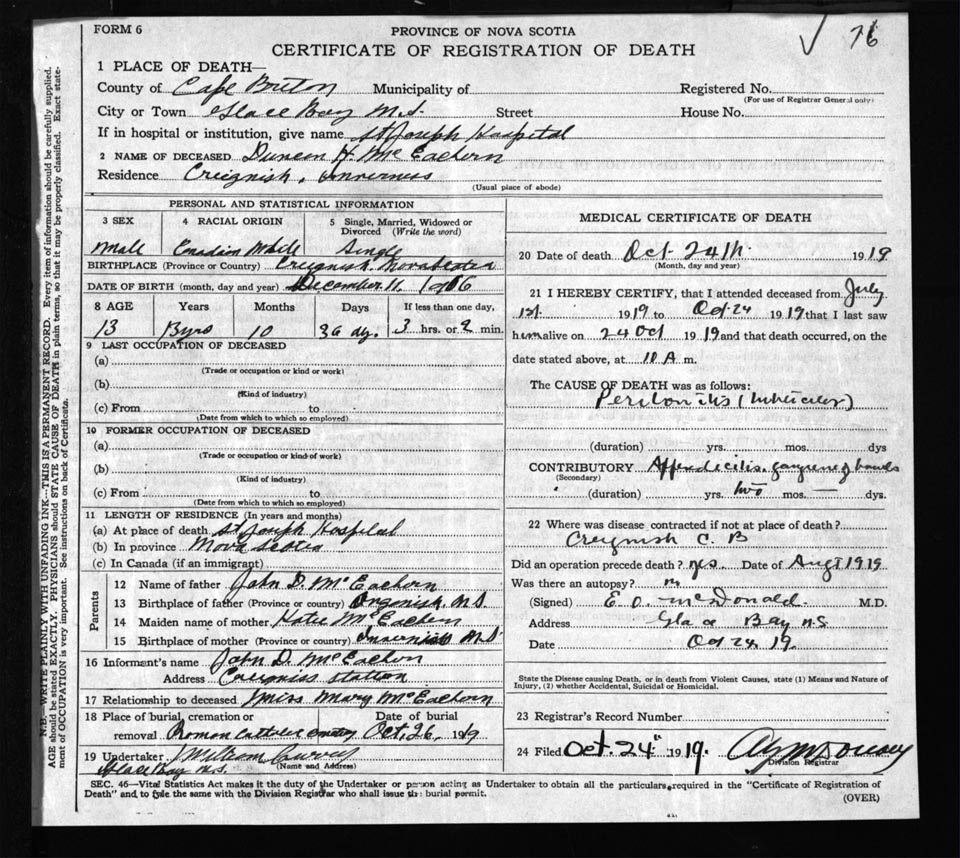 FORM 6
PROVINCE OF NOVA SCOTIA
CERTIFICATE OF REGISTRATION OF DEATH
76
N.B.—WRITE PLAINLY WITH UNFADING INK—THIS IS A PERMANENT RECORD. Every item of information should be carefully supplied.
AGE should be stated EXACTLY. PHYSICIANS should STATE CAUSE OF DEATH in plain terms, so that it may be properly classified. Exact state-
ment of OCCUPATION is very important. See instructions on back of Certificate.
1 PLACE OF DEATH—
County of Cape Breton Municipality of Registered No.
(For use of Registrar General only)
City or Town Glace Bay N.S. Street House No.
If in hospital or institution, give name St Joseph Hospital
2 NAME OF DECEASED Duncan H. McEachern
Residence Creignish, Inverness
(Usual place of abode)
PERSONAL AND STATISTICAL INFORMATION
3 SEX 4 RACIAL ORIGIN 5 Single, Married, Widowed or Divorced (Write the word)
Male Canadian White Single
BIRTHPLACE (Province or Country) Creignish Nova Scotia
DATE OF BIRTH (month, day and year) December 11, 1906
8 AGE Years Months Days If less than one day,
13 Byrs 10 dy. 3 hrs. or 2 min.
9 LAST OCCUPATION OF DECEASED
(a)
(Trade or occupation or kind or work)
(b)
(Kind of industry)
(c) From to
(Date from which to which so employed)
10 FORMER OCCUPATION OF DECEASED
(a)
(Trade or occupation or kind of work)
(b)
(Kind of industry)
(c) From to
(Date from which to which so employed)
11 LENGTH OF RESIDENCE (In years and months)
(a) At place of death St Joseph Hospital
(b) In province Nova Scotia
(c) In Canada (if an immigrant)
Parents
12 Name of father John D. McEachern
13 Birthplace of father (Province or country) N.S.
14 Maiden name of mother Katie McEachern
15 Birthplace of mother (Province or country) N.S
16 Informant's name John D. McEachern
Address Creigniss Station
17 Relationship to deceased Miss Mary McEachern
18 Place of burial, cremation or removal Roman Catholic Cemetery Date of burial Oct, 26, 1919
19 Undertaker William Curry
(Name and Address)
Glace Bay N.S.
MEDICAL CERTIFICATE OF DEATH
20 Date of death Oct 24th 1919
(Month, day and year)
21 I HEREBY CERTIFY, that I attended deceased from July
1st 1919 to Oct 24 1919 that I last saw
him alive on 24 Oct 1919 and that death occurred, on the
date stated above, at A m.
The CAUSE OF DEATH was as follows:
Peritonitis
(duration) yrs. mos. dys
CONTRIBUTORY Appendicitis, gangrene of bowels
(Secondary)
(duration) yrs. two mos. — dys.
22 Where was disease contracted if not at place of death?
Creignish C. B
Did an operation precede death? yes. Date of Aug 1 1919
Was there an autopsy?
(Signed) E. O. McDonald. M.D.
Address Glace Bay N.S
Date Oct 24, 19
State the Disease causing Death, or in death from Violent Causes, state (1) Means and Nature of
Injury, (2) whether Accidental, Suicidal or Homicidal.
23 Registrar's Record Number
24 Filed Oct. 24th 1919.
Division Registrar
SEC. 46—Vital Statistics Act makes it the duty of the Undertaker or person acting as Undertaker to obtain all the particulars required in the "Certificate of Registration of
Death" and to file the same with the Division Registrar who shall issue the burial permit.
(OVER)